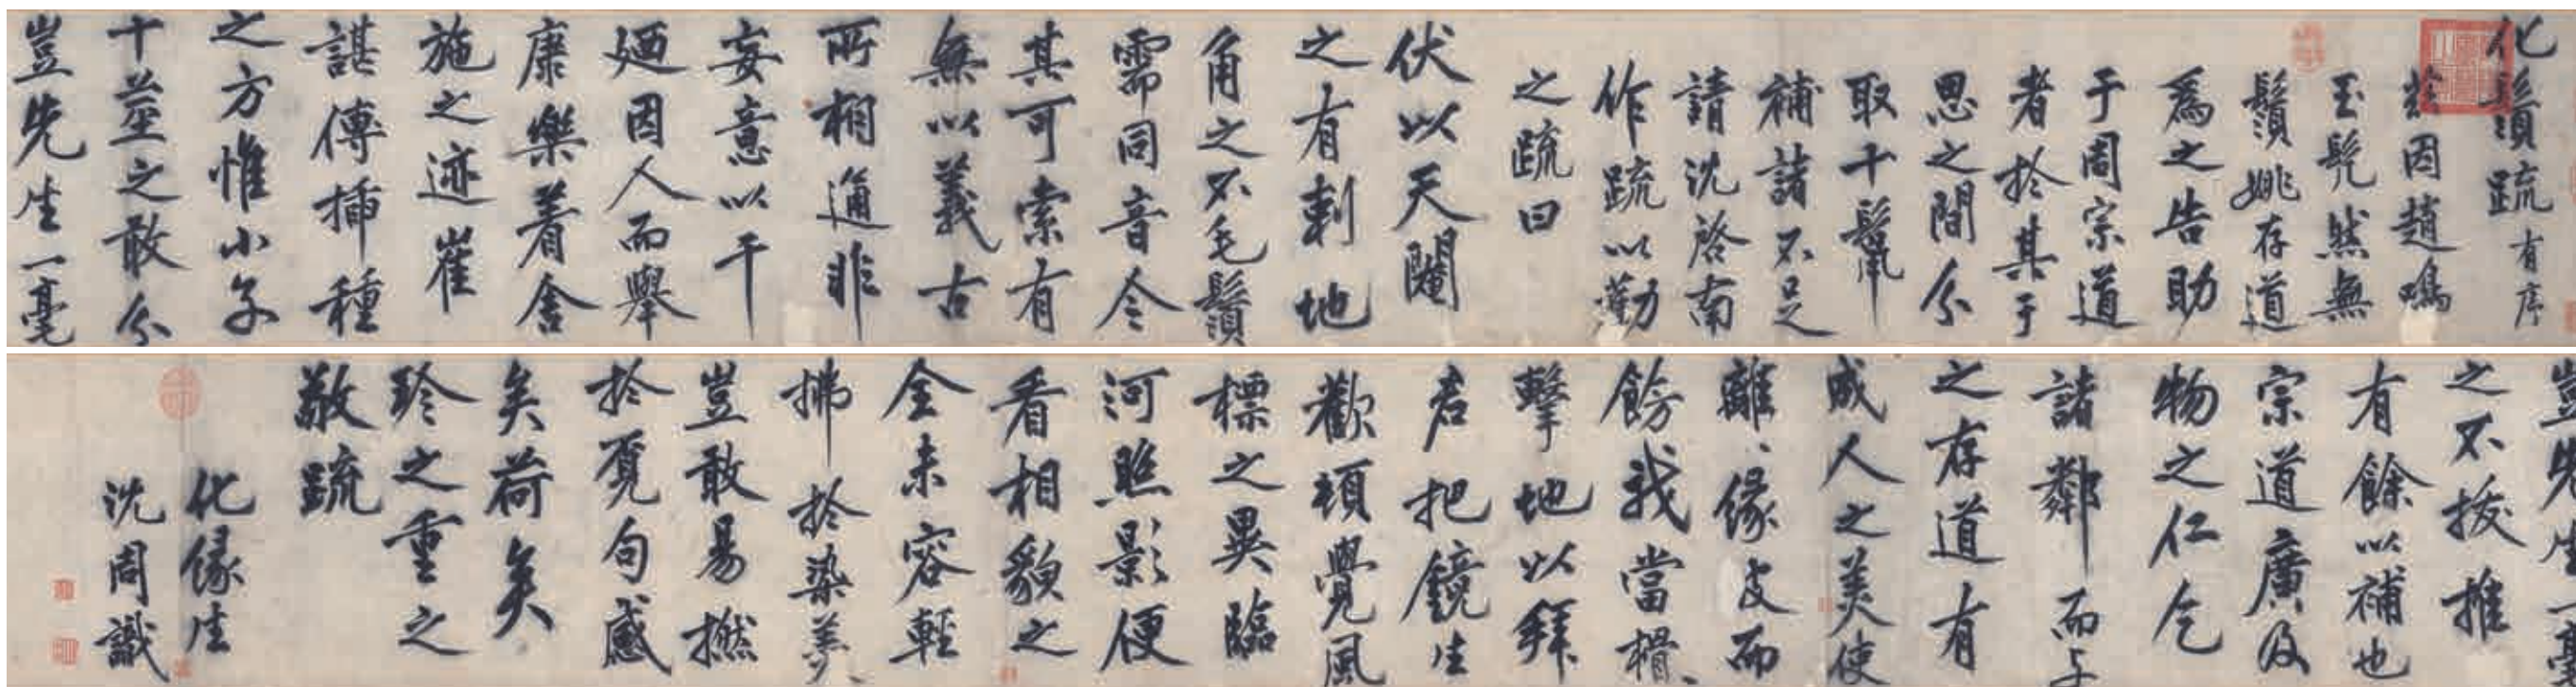 化鬚疏有序
茲因趙鳴
玉髡然無
鬚姚存道
爲之告助
于周宗道
者於其于
思之間分
取十鬣
補諸不足
請沈啓南
作疏以勸
之疏曰
伏以天閹
之有刺地
角之不毛鬚
需同音今
其可索有
無以義古
所相通非
妄意以干
廼因人而舉
康樂着舍
施之迹崔
諶傳揷種
之方惟小子
十莖之敢分
豈先生一毫
之不拔推
有餘以補也
宗道廣及
物之仁乞
諸鄰而与
之存道有
成人之美使
離離緣皮而
餝我當榾榾
擊地以拜
君把鏡生
歡頓覺風
標之異臨
河照影便
看相貌之
全未容輕
拂於染羹
豈敢易撚
於覓句感
矣荷矣
珍之重之
敬疏
化緣生
沈周識